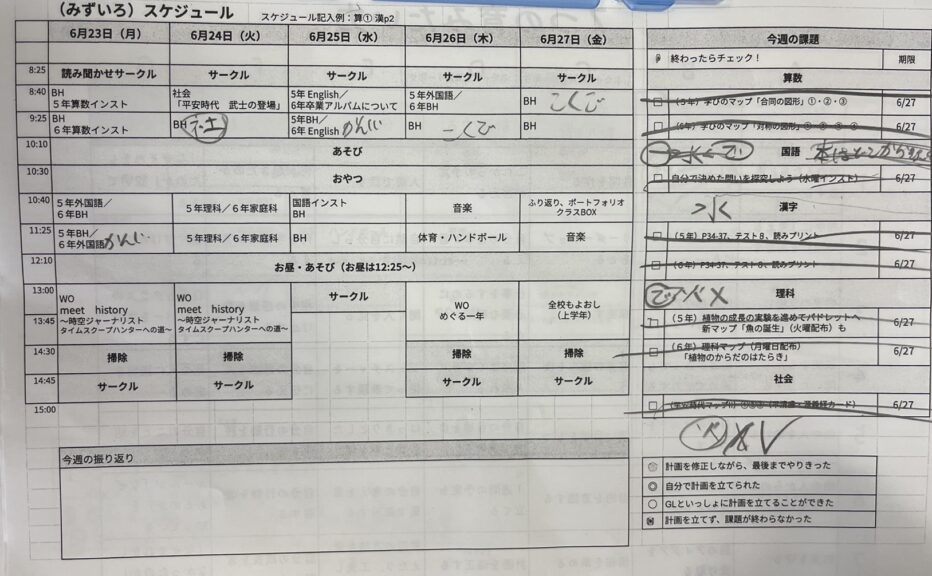 (みずいろ) スケジュール
スケジュール記入例：算① 漢p2
6月23日（月） 6月24日（火） 6月25日（水） 6月26日（木） 6月27日（金）
8:25 読み聞かせサークル サークル サークル サークル サークル
8:40 BH
５年算数インスト
社会
「平安時代　武士の登場」
5年 English／
6年卒業アルバムについて
５年外国語／
６年BH
BH こくご
9:25 BH
６年算数インスト
BH
5年BH／
6年 English かんじ
BH
BH
10:10 あそび
10:30 おやつ
10:40 ５年外国語／
６年BH
５年理科／６年家庭科
国語インスト
BH
音楽
ふり返り、ポートフォリオ
クラスBOX
11:25 ５年BH／
６年外国語 かんじ
５年理科／６年家庭科
BH
体育・ハンドボール
音楽
12:10 お昼・あそび（お昼は12:25〜）
13:00 WO
meet　history
〜時空ジャーナリスト
タイムスクープハンターへの道〜
WO
meet　history
〜時空ジャーナリスト
タイムスクープハンターへの道〜
サークル
WO
めぐる一年
全校もよおし
（上学年）
13:45
14:30 掃除 掃除 掃除 掃除
14:45 サークル サークル サークル サークル
15:00
今週の振り返り
今週の課題
終わったらチェック！ 期限
算数
（５年）学びのマップ「合同の図形」①・②・③ 6/27
（6年）学びのマップ「対称の図形」①・②・③・④ 6/27
国語
自分で決めた問いを探究しよう（水曜インスト） 6/27
漢字
（５年）P34-37、テスト８、読みプリント 6/27
（６年）P34-37、テスト８、読みプリント 6/27
理科
（５年）植物の成長の実験を進めてパドレットへ
新マップ「魚の誕生」（火曜配布）も 6/27
（６年）理科マップ（月曜日配布）
「植物のからだのはたらき」 6/27
社会
6/27
計画を修正しながら、最後までやりきった
◎ 自分で計画を立てられた
○ GLといっしょに計画を立てることができた
計画を立てず、課題が終わらなかった